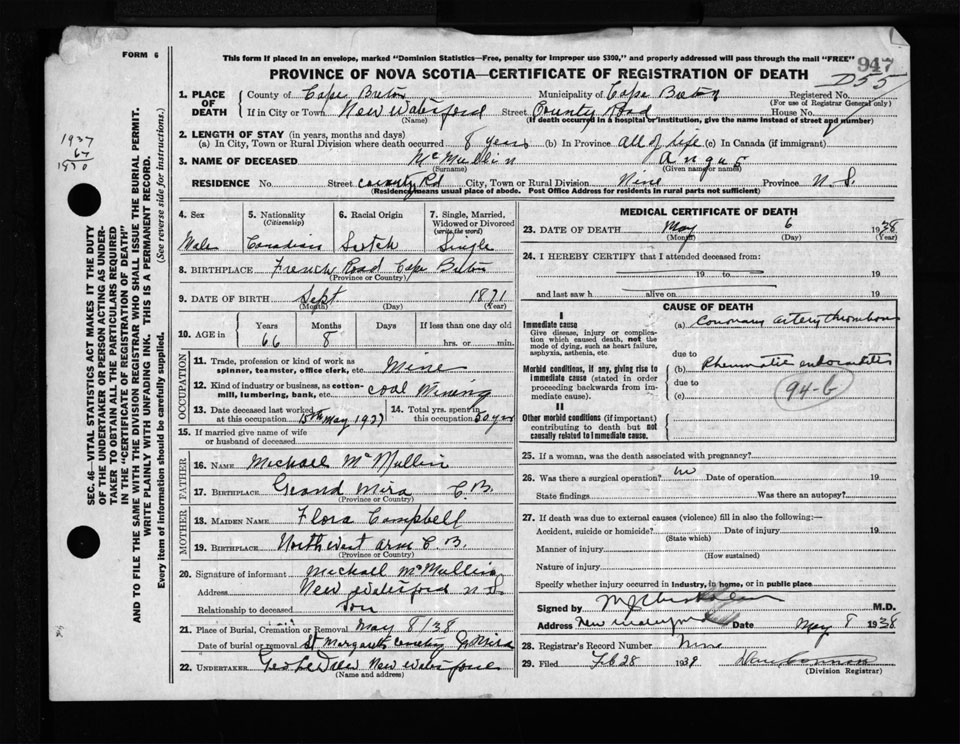 FORM 6
This form if placed in an envelope, marked "Dominion Statistics—Free, penalty for improper use $300," and properly addressed will pass through the mail "FREE"
947
PROVINCE OF NOVA SCOTIA—CERTIFICATE OF REGISTRATION OF DEATH
D55
1. PLACE OF DEATH
County of Cape Breton Municipality of Cape Breton Registered No.
(For use of Registrar General only)
If in City or Town New Waterford Street County Road House No.
(Name) (If death occurred in a hospital or institution, give the name instead of street and number)
2. LENGTH OF STAY (in years, months and days)
(a) In City, Town or Rural Division where death occurred 8 years (b) In Province all of life (c) In Canada (if immigrant)
3. NAME OF DECEASED McMullin Angus
(Surname) (Given name or names)
RESIDENCE No. Street County Rd City, Town or Rural Division Province N.S.
(Residence means usual place of abode. Post Office Address for residents in rural parts not sufficient)
1937
1930
SEC. 46—VITAL STATISTICS ACT MAKES IT THE DUTY
OF THE UNDERTAKER OR PERSON ACTING AS UNDER-
TAKER TO OBTAIN ALL THE PARTICULARS REQUIRED
IN THE "CERTIFICATE OF REGISTRATION OF DEATH"
AND TO FILE THE SAME WITH THE DIVISION REGISTRAR WHO SHALL ISSUE THE BURIAL PERMIT.
WRITE PLAINLY WITH UNFADING INK. THIS IS A PERMANENT RECORD.
Every item of information should be carefully supplied. (See reverse side for instructions.)
4. Sex
Male
5. Nationality
(Citizenship)
Canadian
6. Racial Origin
Scotch
7. Single, Married,
Widowed or Divorced
(write the word)
Single
8. BIRTHPLACE French Road Cape Breton
(Province or Country)
9. DATE OF BIRTH Sept 1871
(Month) (Day) (Year)
10. AGE in
Years Months Days If less than one day old
66 8 hrs. or min.
OCCUPATION
11. Trade, profession or kind of work as
spinner, teamster, office clerk, etc. Mine
12. Kind of industry or business, as cotton-
mill, lumbering, bank, etc. Coal Mining
13. Date deceased last worked
at this occupation 15th May 1937
14. Total yrs. spent in
this occupation 30 years
15. If married give name of wife
or husband of deceased
FATHER
16. NAME Michael McMullin
17. BIRTHPLACE Grand Mira C.B.
(Province or Country)
MOTHER
18. MAIDEN NAME Flora Campbell
19. BIRTHPLACE North West Arm C.B.
(Province or Country)
20. Signature of informant Michael McMullin
Address New Waterford N.S.
Relationship to deceased Son
21. Place of Burial, Cremation or Removal May 8/38
Date of burial or removal St Margarets Cemetery G. Mira
22. UNDERTAKER New Waterford
(Name and address)
MEDICAL CERTIFICATE OF DEATH
23. DATE OF DEATH May 6 1938
(Month) (Day) (Year)
24. I HEREBY CERTIFY that I attended deceased from:
19 to 19
and last saw h alive on 19
CAUSE OF DEATH
I
Immediate cause
Give disease, injury or complica-
tion which caused death, not the
mode of dying, such as heart failure,
asphyxia, asthenia, etc.
(a) Coronary artery thrombosis
due to
Morbid conditions, if any, giving rise to
immediate cause (stated in order
proceeding backwards from im-
mediate cause).
(b) Rheumatic endocarditis
due to
(c)
94-b
II
Other morbid conditions (if important)
contributing to death but not
causally related to immediate cause.
25. If a woman, was the death associated with pregnancy?
26. Was there a surgical operation? no Date of operation 19
State findings Was there an autopsy?
27. If death was due to external causes (violence) fill in also the following:—
Accident, suicide or homicide? Date of injury 19
(State which)
Manner of injury
(How sustained)
Nature of injury
Specify whether injury occurred in industry, in home, or in public place
Signed by M.D.
Address New Waterford Date May 8 1938
28. Registrar's Record Number
29. Filed Feb 28 1939
(Division Registrar)